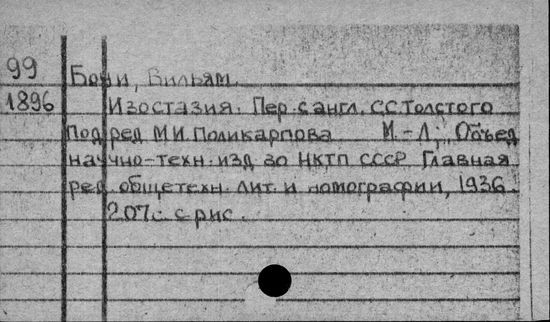 99
Боуи, Вильям.
1896 Изостазия. Пер. с англ. С.С.Толстого
Под ред М.И.Поликарпова М.-Л., Объед
научно-техн. изд-во НКТП СССР Главная
ред. общетехн. лит. и номографии, 1936.
207с. с рис.